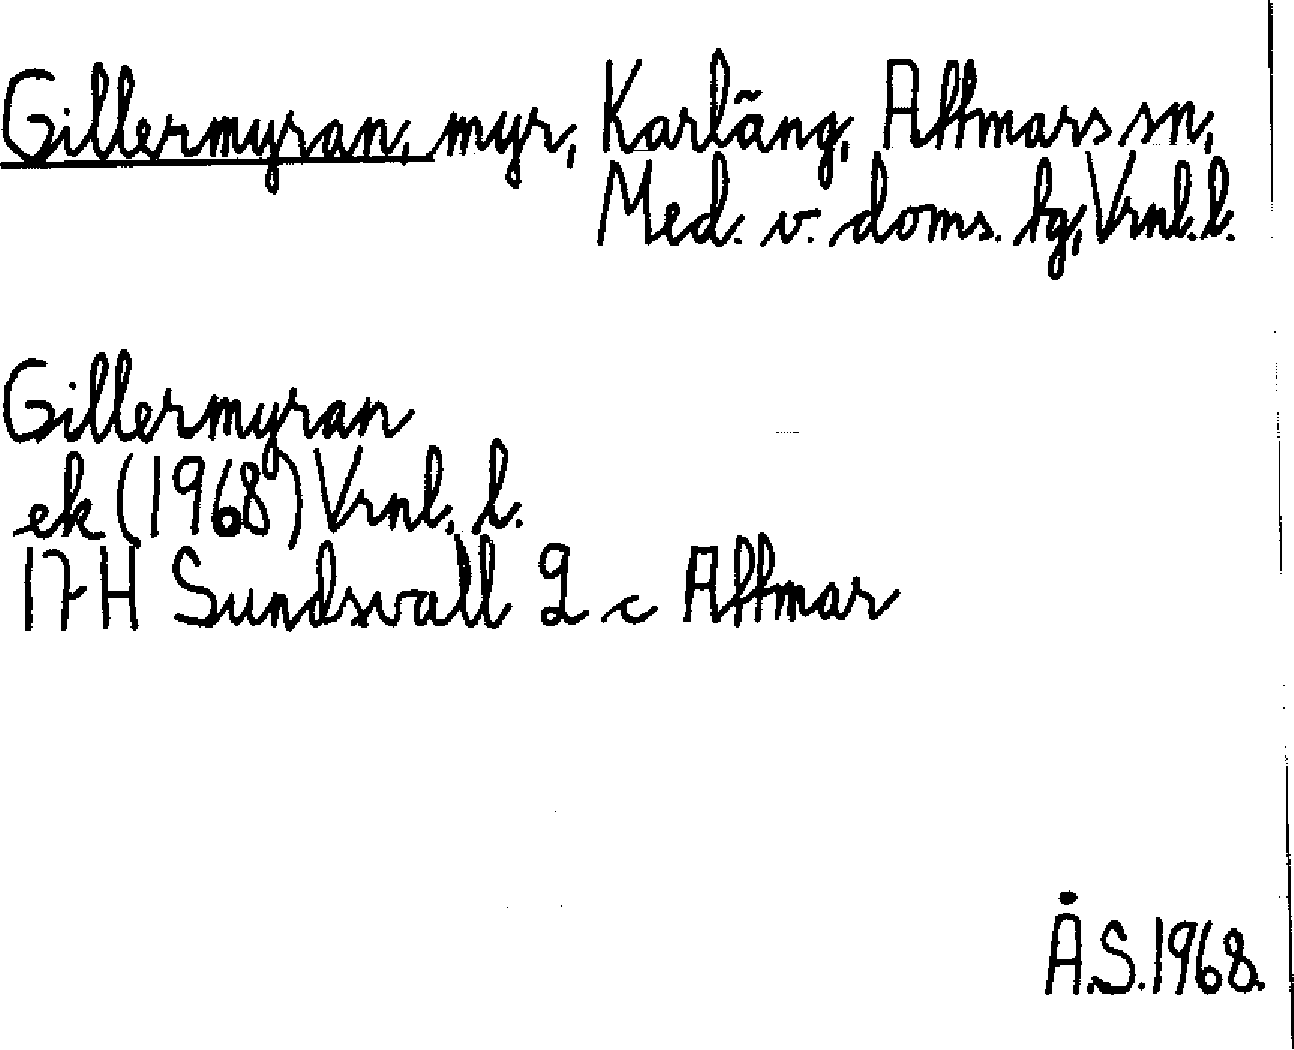 Gillermyran, myr, Karläng, Attmars sn,
Med. v. doms. tg, Vrnl. l.
Gillermyran
ek (1968) Vrnl. l.
17H Sundsvall 2 c Attmar
Å.S. 1968.